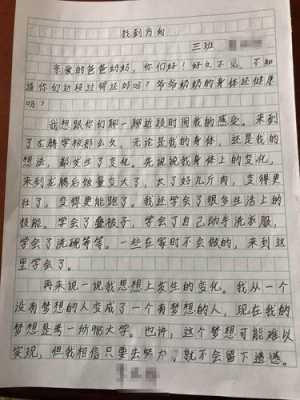 找到方向
三班
亲爱的爸爸妈妈，你们好！好久不见，不知
道你们的近段过得还好吗？爷爷奶奶的身体还健康
吗？
我想跟你们聊一聊这段时间我的感受。来到
了东腾学校那么久，无论是我的身体，还是我的
想法，都发生了变化。先说说我身体上的变化，
来到东腾后饭量变大了，大了好几斤肉，变得更
壮了，变得更能跑了。我还学会了很多生活上的
技能。学会了叠被子，学会了自己的手洗衣服，
学会了洗碗等等。一些在家时不会做的，来到这
里学会了。
再来说一说我思想上发生的变化。我从一个
没有梦想的人变成了一个有梦想的人，现在我的
梦想是考一所鸭大学。也许，这个梦想可能难以
实现，但我相信只要去努力，就不会留下遗憾。